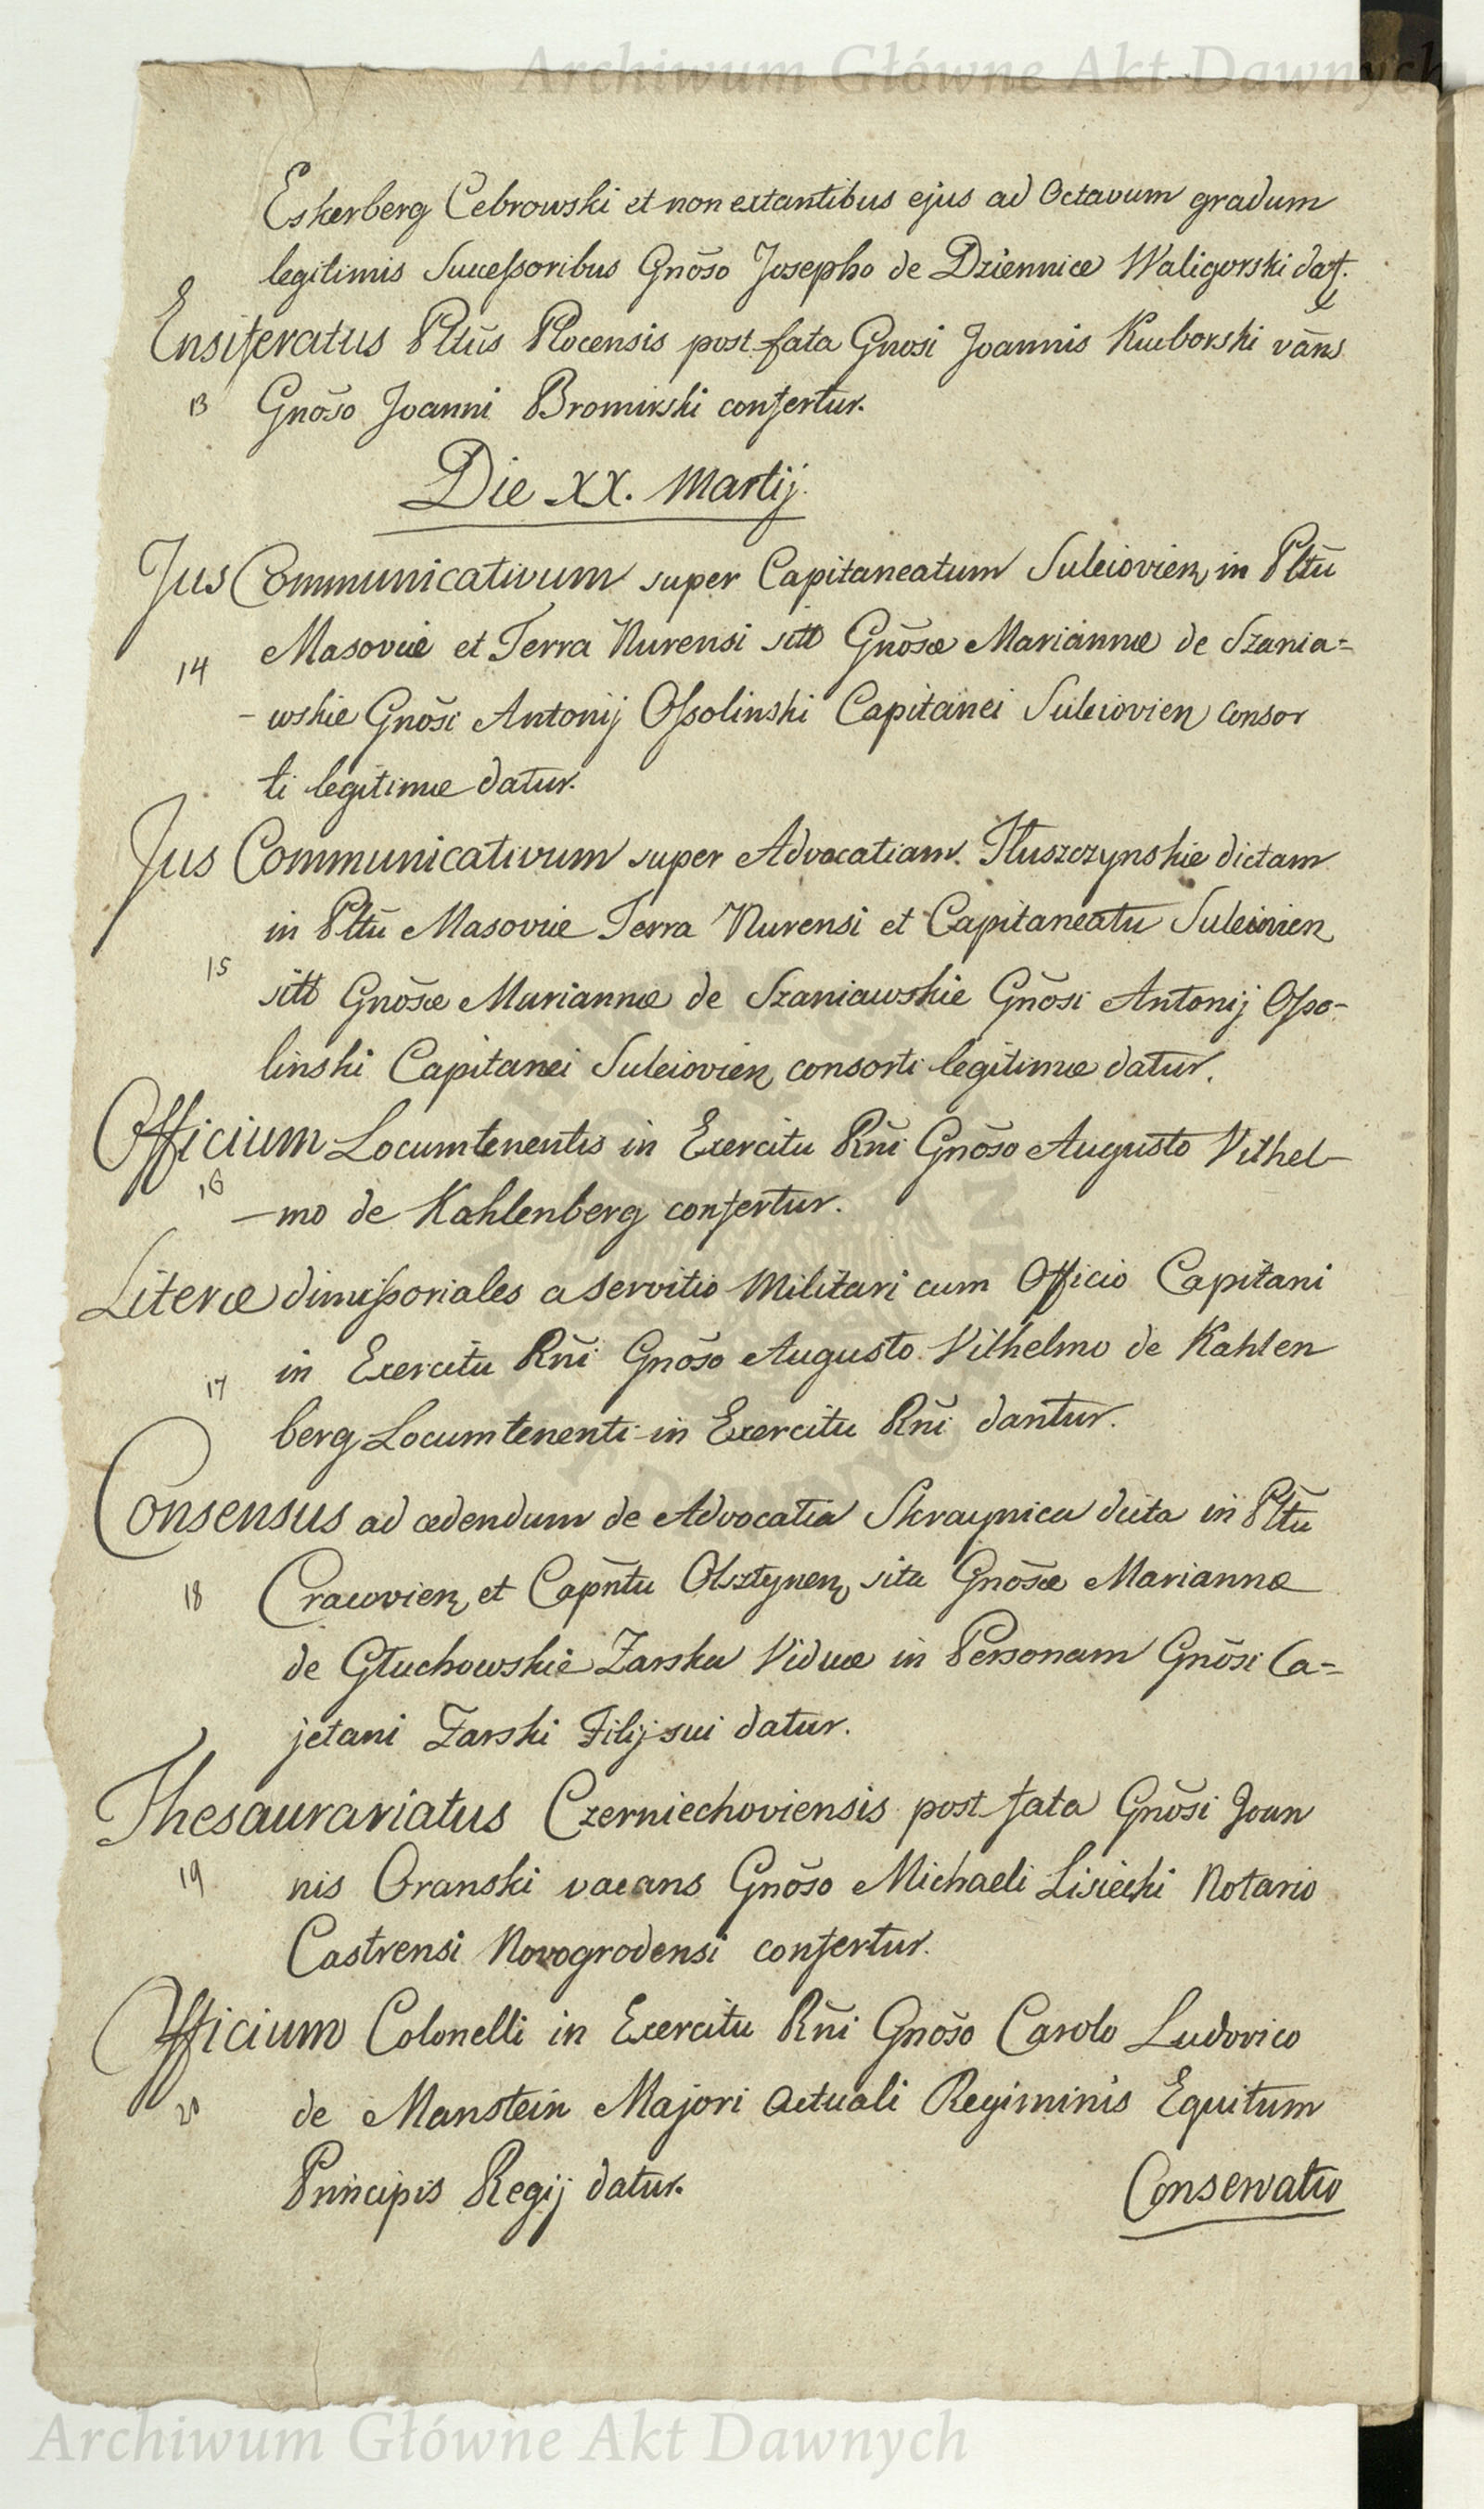 Archiwum Główne Akt Dawnych
Eskerberg Cebrowski et non extantibus ejus ad Octavum gradum
legitimis Successoribus Gnõso Josepho de Dziennice Waligorski dat̃.
Ensiferatus Pltũs Plocensis post fata Gnosi Joannis Kuborski vãns
13 Gnõso Joanni Bromirski confertur.
Die XX. Martij.
Jus Communicativum super Capitaneatum Suleiovien, in Pltũ
Masoviæ et Terra Nurensi sitt Gnõsæ Mariannæ de Szania=
14
- wskie Gnõsi Antonij Ossolinski Capitanei Suleiovien consor
ti legitimæ datur.
Jus Communicativum super Advocatiam Tłuszczynskie dictam
in Pltũ Masoviæ Terra Nurensi et Capitaneatu Suleiovien
15
sitt Gnõsæ Mariannæ de Szaniawskie Gnõsi Antonij Osso-
linski Capitanei Suleiovien, consorti legitimæ datur.
Officium Locumtenentis in Exercitu Rñi Gnõso Augusto Vilhel-
16
-mo de Kahlenberg confertur.
Literæ dimissoriales a servitio Militari cum Officio Capitani
in Exercitu Rñi Gnõso Augusto Vilhelmo de Kahlen
17
berg Locumtenenti in Exercitu Rñi dantur.
Consensus ad cedendum de Advocatia Skraynica dicta in Pltũ
18 Cracovien, et Capñtu Olsztynen, sita Gnõsæ Mariannæ
de Głuchowskie Zarska Viduæ in Personam Gnõsi Ca=
jetani Zarski Filij sui datur.
Thesaurariatus Czerniechoviensis post fata Gnõsi Joan
19 nis Oranski vacans Gnõso Michaeli Lisiecki Notario
Castrensi Novogrodensi confertur.
Officium Colonelli in Exercitu Rñi Gnõso Carolo Ludovico
20 de Manstein Majori Actuali Regiminis Equitum
Principis Regij datur.
Conservatio
Archiwum Główne Akt Dawnych